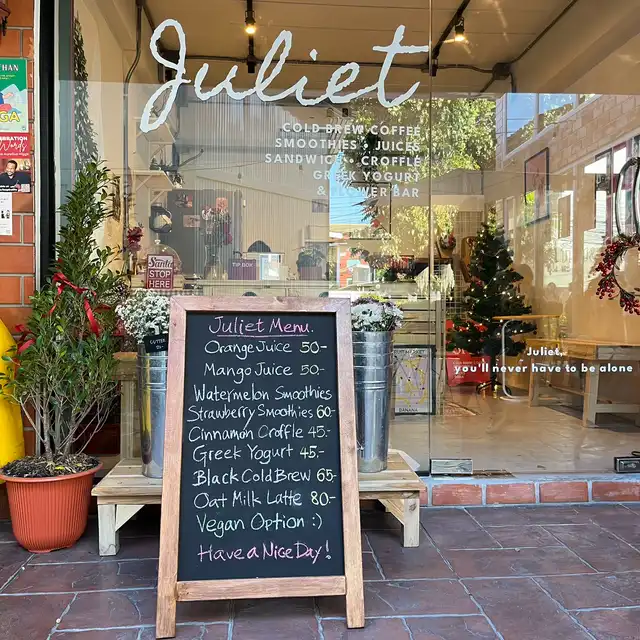 Juliet
COLD BREW COFFEE
SMOOTHIES JUICES
SANDWICH CROFFLE
GREEK YOGURT
& FLOWER BAR
Santa
STOP
HERE
TIP BOX
Juliet Menu.
Orange Juice 50-
Mango Juice 50-
Watermelon Smoothies
Strawberry Smoothies 60-
Cinnamon Croffle 45-
Greek Yogurt 45-
Black Cold Brew 65-
Oat Milk Latte 80-
Vegan Option :)
Have a Nice Day!
Juliet,
you'll never have to be alone
BANANA